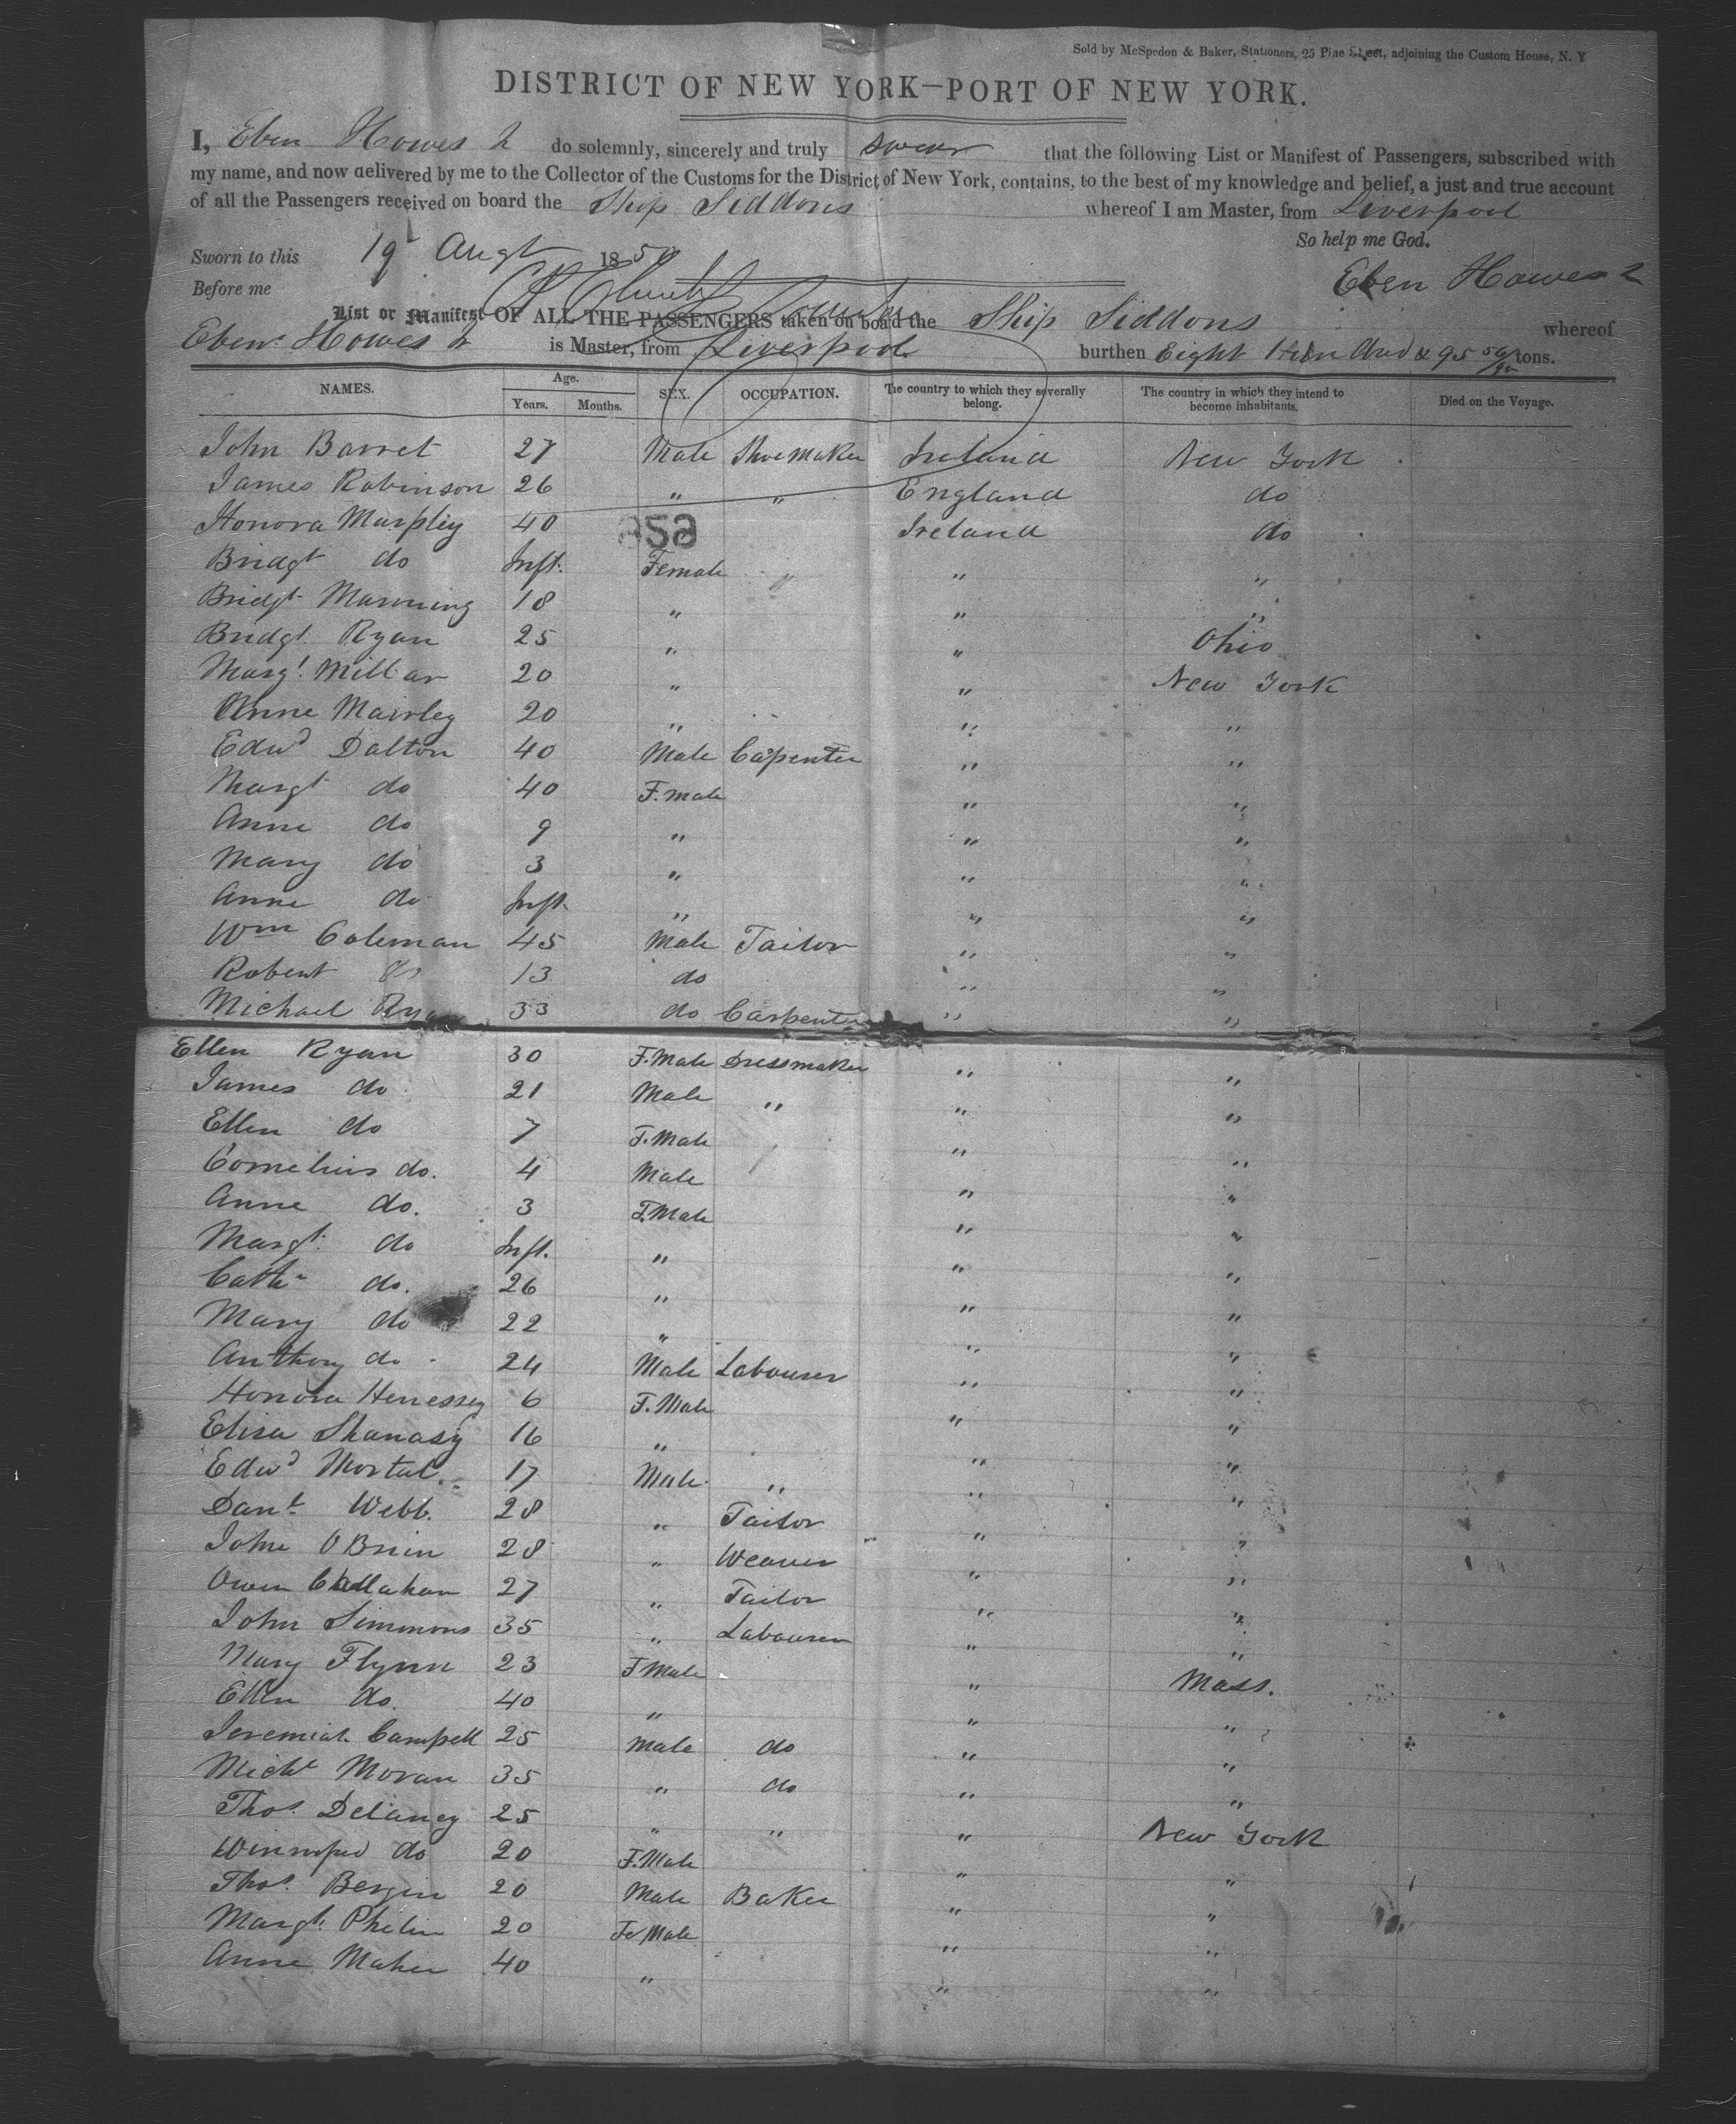 Sold by McSpedon & Baker, Stationers, 25 Pine Street, adjoining the Custom House, N. Y
DISTRICT OF NEW YORK—PORT OF NEW YORK.
I, Eben Howes 2 do solemnly, sincerely and truly swear that the following List or Manifest of Passengers, subscribed with
my name, and now delivered by me to the Collector of the Customs for the District of New York, contains, to the best of my knowledge and belief, a just and true account
of all the Passengers received on board the Ship Siddons whereof I am Master, from Liverpool
So help me God.
Sworn to this 19 Augt 1850
Eben Howes 2
Before me
List or Manifest OF ALL THE PASSENGERS taken on board the Ship Siddons whereof
Eben. Howes 2 is Master, from Liverpool burthen Eight Hundred & 95 tons.
NAMES. Age. Years. Months. SEX. OCCUPATION. The country to which they severally belong. The country in which they intend to become inhabitants. Died on the Voyage.
John Barret 27 Male Shoemaker Ireland New York
James Robinson 26 " " England do
Honora 40 Ireland do
Bridgt do Inft. Female " " "
Bridgt Manning 18 " " "
Bridgt. Ryan 25 " " Ohio
Margt. Millar 20 " " New York
Anne 20 " " "
Edwd Dalton 40 Male Capenter " "
Margt do 40 F.male " "
Anne do 9 " " "
Mary do 3 " " "
Anne do Inft. " " "
Wm Coleman 45 Male Tailor " "
Robert do 13 do " "
Michael Ryan 33 do Carpenter " "
Ellen Ryan 30 F.Male Dressmaker " "
James do 21 Male " " "
Ellen do 7 F.Male " "
Cornelius do. 4 Male " "
Anne do. 3 F.Male " "
Margt. do Inft. " " "
Cathe do. 26 " " "
Mary do 22 " " "
Anthony do 24 Male Labourer " "
Honora Henessey 6 F.Male " "
Elisa Shanasy 16 " " "
Edwd 17 Male " " "
Danl. Webb. 28 " Tailor " "
John OBrien 28 " Weaver " "
Owen Callahan 27 " Tailor " "
John Simmons 35 " Labourer " "
Mary Flynn 23 F Male " Mass.
Ellen do. 40 " " "
Jeremiah Campell 25 Male do " "
Michl Moran 35 " do " "
Thos. Delaney 25 " " " New York
do 20 F.Male " "
Thos. Bergin 20 Male Baker " "
Margt. Phelin 20 Fe Male " "
Anne Maher 40 " " "